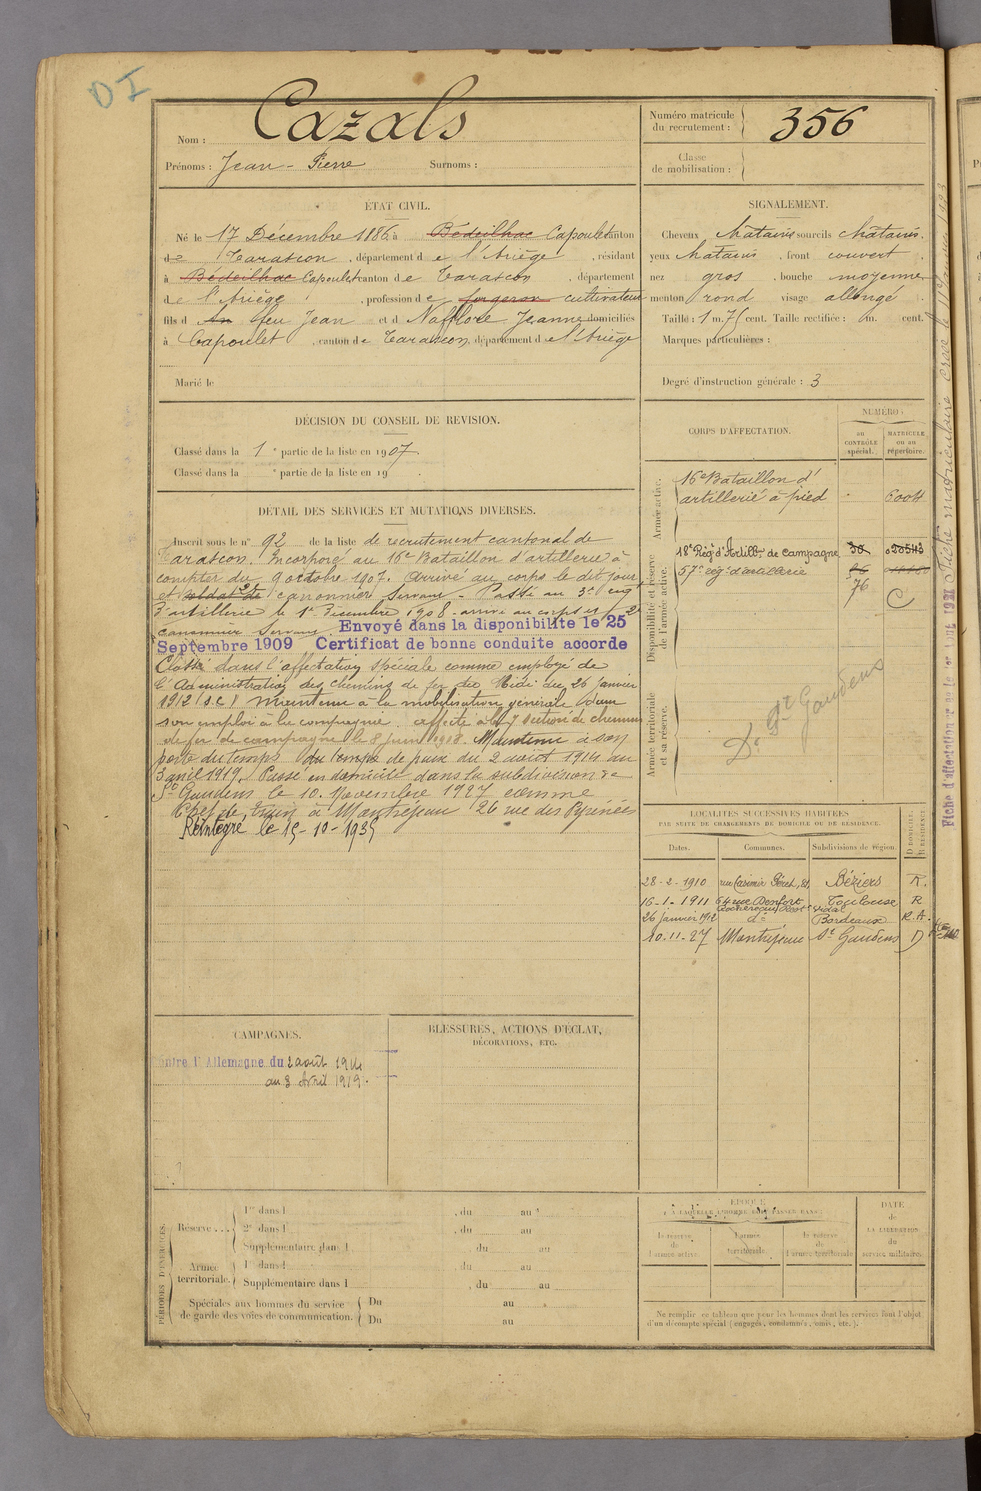 DI
Nom : Cazals
Prénoms : Jean-Pierre Surnoms :
Numéro matricule
du recrutement : 356
Classe
de mobilisation :
ÉTAT CIVIL.
Né le 17 Décembre 1886 à Bédeilhac Capoulet canton
de Tarascon, département de l'Ariège, résidant
à Bédeilhac Capoulet canton de Tarascon, département
de l'Ariège, profession de forgeron cultivateur
fils d feu Jean et d Nafflore Jeanne domiciliés
à Capoulet, canton de Tarascon, département de l'Ariège
Marié le
SIGNALEMENT.
Cheveux châtains sourcils châtains.
yeux châtains, front couvert
nez gros, bouche moyenne
menton rond visage allongé
Taille : 1 m. 75 cent. Taille rectifiée : m. cent.
Marques particulières :
Degré d'instruction générale : 3
DÉCISION DU CONSEIL DE REVISION.
Classé dans la 1e partie de la liste en 1907.
Classé dans la e partie de la liste en 19 .
DÉTAIL DES SERVICES ET MUTATIONS DIVERSES.
Inscrit sous le n° 92 de la liste de recrutement cantonal de
Tarascon. Incorporé au 16e Bataillon d'artillerie à
compter du 9 octobre 1907. Arrivé au corps le dit jour
et soldat de 2e canonnier servant. Passé au 3e
d'artillerie le 1er Décembre 1908. arrivé au corps et 2e
canonnier Servant. Envoyé dans la disponibilité le 25
Septembre 1909 Certificat de bonne conduite accordé
Classé dans l'affectation spéciale comme employé de
l'Administration des chemins de fer du Midi du 26 janvier
1912 (s.c.) Maintenu à la mobilisation générale dans
son emploi à la compagnie. affecté à la 7 section de chemins
de fer de campagne le 8 juin 1918. Maintenu à son
poste du temps du temps de paix du 2 août 1914 au
3 avril 1919. Passé en domicile dans la subdivision de
St Gaudens le 10 Novembre 1927 comme
Chef de train à Montréjeau 26 rue des Pyrénées
Réintégré le 15-10-1935
CORPS D'AFFECTATION.
NUMÉROS
au
CONTRÔLE
spécial.
MATRICULE
ou au
répertoire.
Armée active.
16e Bataillon d'
artillerie à pied 6004
Disponibilité et réserve
de l'armée active.
18e Régt d'Artillie de campagne 30 020543
57e régt d'artillerie
76 C
Armée territoriale
et sa réserve.
De St Gaudens
LOCALITÉS SUCCESSIVES HABITÉES
PAR SUITE DE CHANGEMENTS DE DOMICILE OU DE RÉSIDENCE.
D DOMICILE.
R RÉSIDENCE.
Dates. Communes. Subdivisions de région.
28-2-1910 rue Casimir Péret, 81, Béziers R.
16-1-1911 64 rue Denfert Rochereau Toulouse R
26 janvier 1912 do Bordeaux R.A.
10-11-27 Montréjeau St Gaudens D
CAMPAGNES.
Contre l'Allemagne du 2 août 1914
au 3 Avril 1919.
BLESSURES, ACTIONS D'ÉCLAT,
DÉCORATIONS, ETC.
PÉRIODES D'EXERCICES.
Réserve . . .
1re dans l , du au
2e dans l , du au
Supplémentaire dans l du au
Armée
territoriale.
1re dans l , du au
Supplémentaire dans l , du au
Spéciales aux hommes du service
de garde des voies de communication.
Du au
Du au
ÉPOQUE
À LAQUELLE L'HOMME DOIT PASSER DANS:
la réserve
de
l'armée active.
l'armée
territoriale.
la réserve
de
l'armée territoriale
DATE
de
LA LIBÉRATION
du
service militaire.
Ne remplir ce tableau que pour les hommes dont les services font l'objet
d'un décompte spécial (engagés, condamnés, omis, etc.).